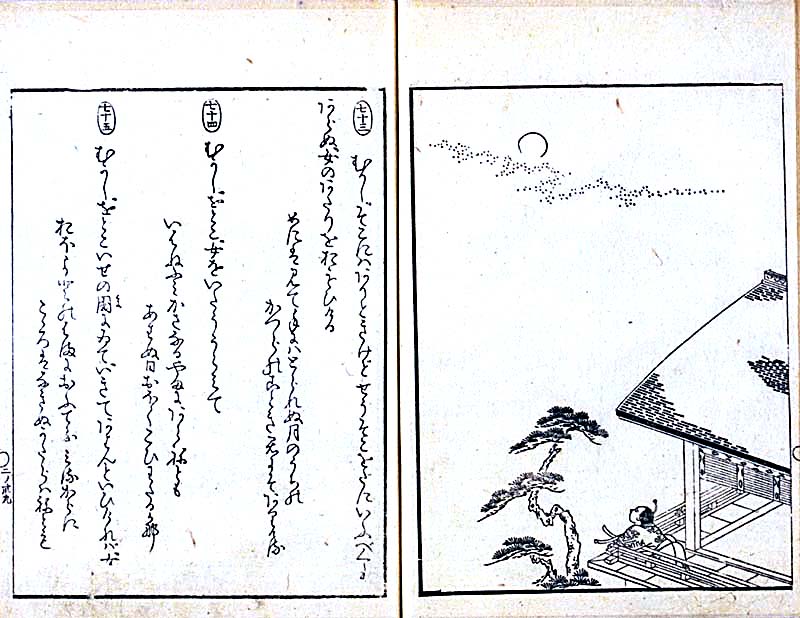 七十三
むかしそこにはありときけどせうそこをだにいふべくも
あらぬ女のあたりを思ひける
めには見て手にはとられぬ月のうちの
かつらのごとき君にぞありける
七十四
むかしをとこ女をいたうゝらみて
いはねふみかさなるやまにあらねども
あはぬ日おほくこひわたる哉
七十五
むかしをとこいせの国にゐていきてあらんといひければ女
おほよどのはまにおふてふみるからに
こゝろはなぎぬかたらはねども
二ノ廿九